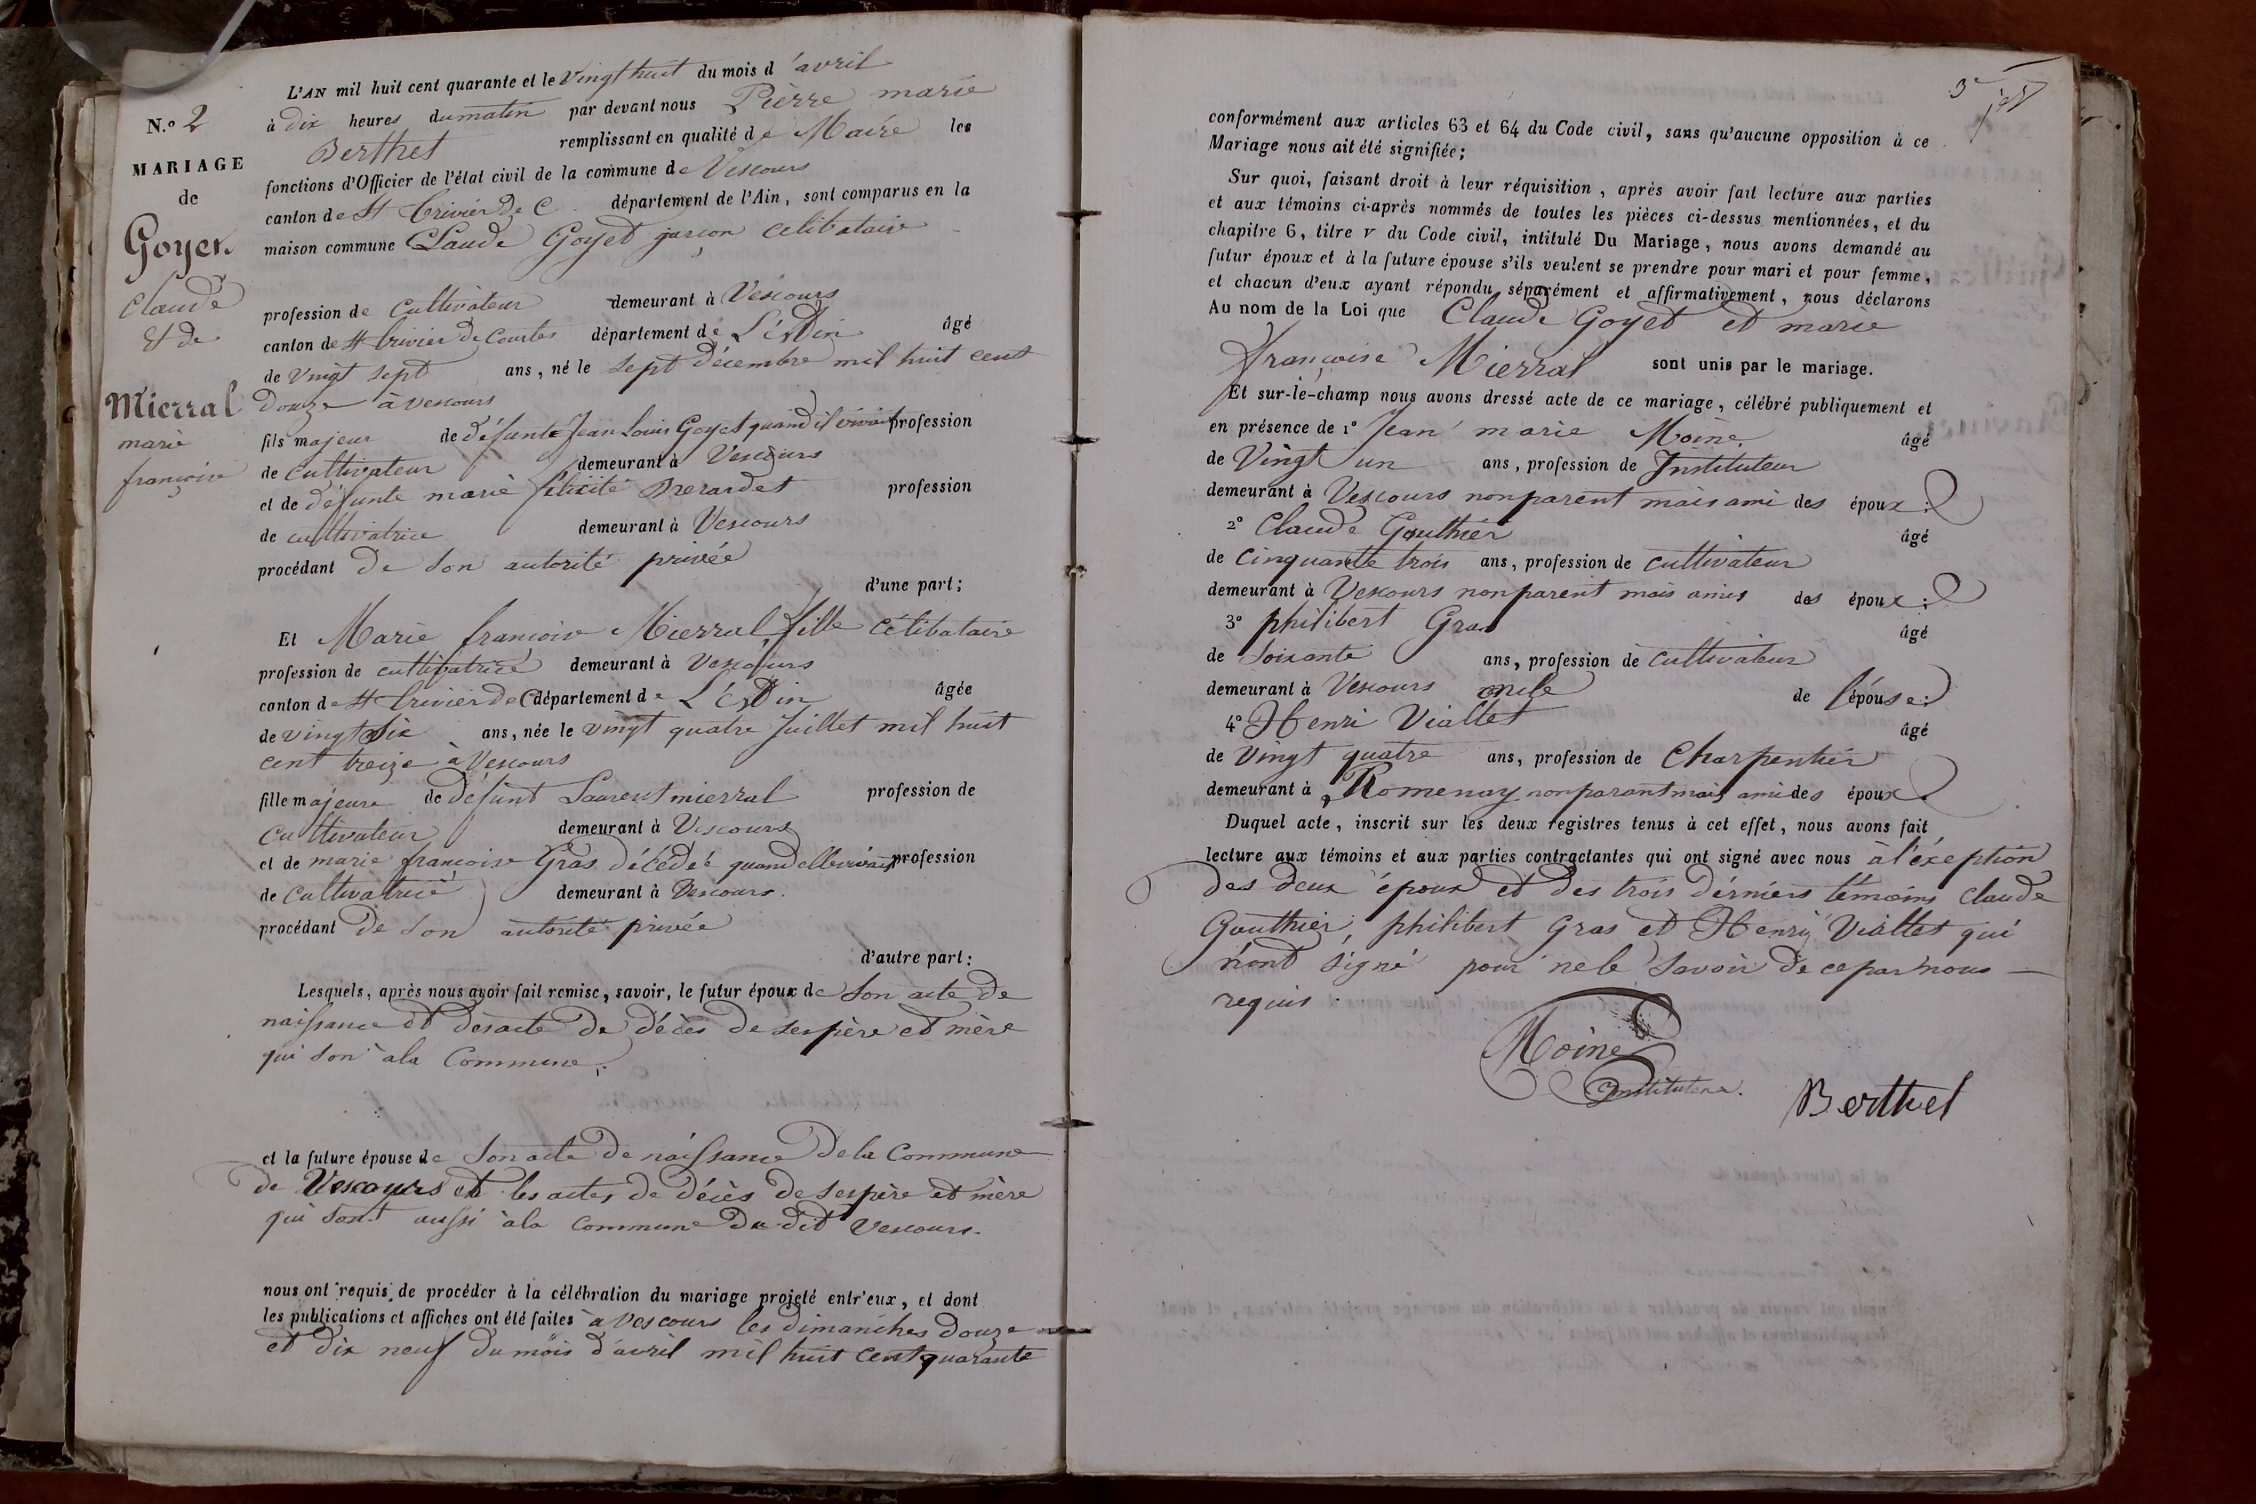 N.o 2
MARIAGE
de
Goyet
Claude
Et de
Mierral
marie
françoise
L'AN mil huit cent quarante et le vingt huit du mois d'avril
à dix heures du matin par devant nous Pierre marie
Berthet remplissant en qualité de Maire les
fonctions d'Officier de l'état civil de la commune de Vescours
canton de St trivier de C département de l'Ain, sont comparus en la
maison commune Claude Goyet garçon célibataire
profession de Cultivateur demeurant à Vescours
canton de St trivier de Courtes département de L'Ain âgé
de vingt sept ans, né le sept décembre mil huit cent
douze à vescours
fils majeur de défunt Jean Louis Goyet quand il vivait profession
de cultivateur demeurant à Vescours
et de défunte marie félicité Brerardet profession
de cultivatrice demeurant à Vescours
procédant de son autorité privée
d'une part;
Et Marie françoise Mierral, fille célibataire
profession de cultivatrice demeurant à Vescours
canton de St trivier de C département de L'Ain âgée
de vingt six ans, née le vingt quatre juillet mil huit
cent treize à Vescours
fille majeure de défunt Laurent mierral profession de
Cultivateur demeurant à Vescours
et de marie françoise Gras décédée quand elle vivait profession
de cultivatrice demeurant à Vescours.
procédant de son autorité privée
d'autre part:
Lesquels, après nous avoir fait remise, savoir, le futur époux de son acte de
naissance et des acte de décès de ses père et mère
qui son à la Commune.
et la future épouse de son acte de naissance de la Commune
de Vescours et les actes de décès de ses père et mère
qui sont aussi à la commune du dit Vescours.
nous ont requis de procéder à la célébration du mariage projeté entr'eux, et dont
les publications et affiches ont été faites à Vescours les dimanches douze
et dix neuf du mois d'avril mil huit cent quarante
3
conformément aux articles 63 et 64 du Code civil, sans qu'aucune opposition à ce
Mariage nous ait été signifiée;
Sur quoi, faisant droit à leur réquisition, après avoir fait lecture aux parties
et aux témoins ci-après nommés de toutes les pièces ci-dessus mentionnées, et du
chapitre 6, titre V du Code civil, intitulé Du Mariage, nous avons demandé au
futur époux et à la future épouse s'ils veulent se prendre pour mari et pour femme,
et chacun d'eux ayant répondu séparément et affirmativement, nous déclarons
Au nom de la Loi que Claude Goyet et marie
françoise Mierral sont unis par le mariage.
Et sur-le-champ nous avons dressé acte de ce mariage, célébré publiquement et
en présence de 1° Jean marie Moine. âgé
de Vingt un ans, profession de Instituteur
demeurant à Vescours non parent mais ami des époux;
2° Claude Gouthier âgé
de cinquante trois ans, profession de cultivateur
demeurant à Vescours non parent mais amis des époux;
3° philibert Gras âgé
de soixante ans, profession de cultivateur
demeurant à Vescours oncle de l'épouse;
4° Henri Viallet âgé
de vingt quatre ans, profession de Charpentier
demeurant à Romenay non parant mais ami des époux.
Duquel acte, inscrit sur les deux registres tenus à cet effet, nous avons fait
lecture aux témoins et aux parties contractantes qui ont signé avec nous à l'éxeption
des deux époux et des trois dérniers témoins Claude
Gouthier, philibert Gras et Henri Viallet qui
n'ont signé pour ne le savoir de ce par nous
requis.
Moine
Instituteur.
Berthet